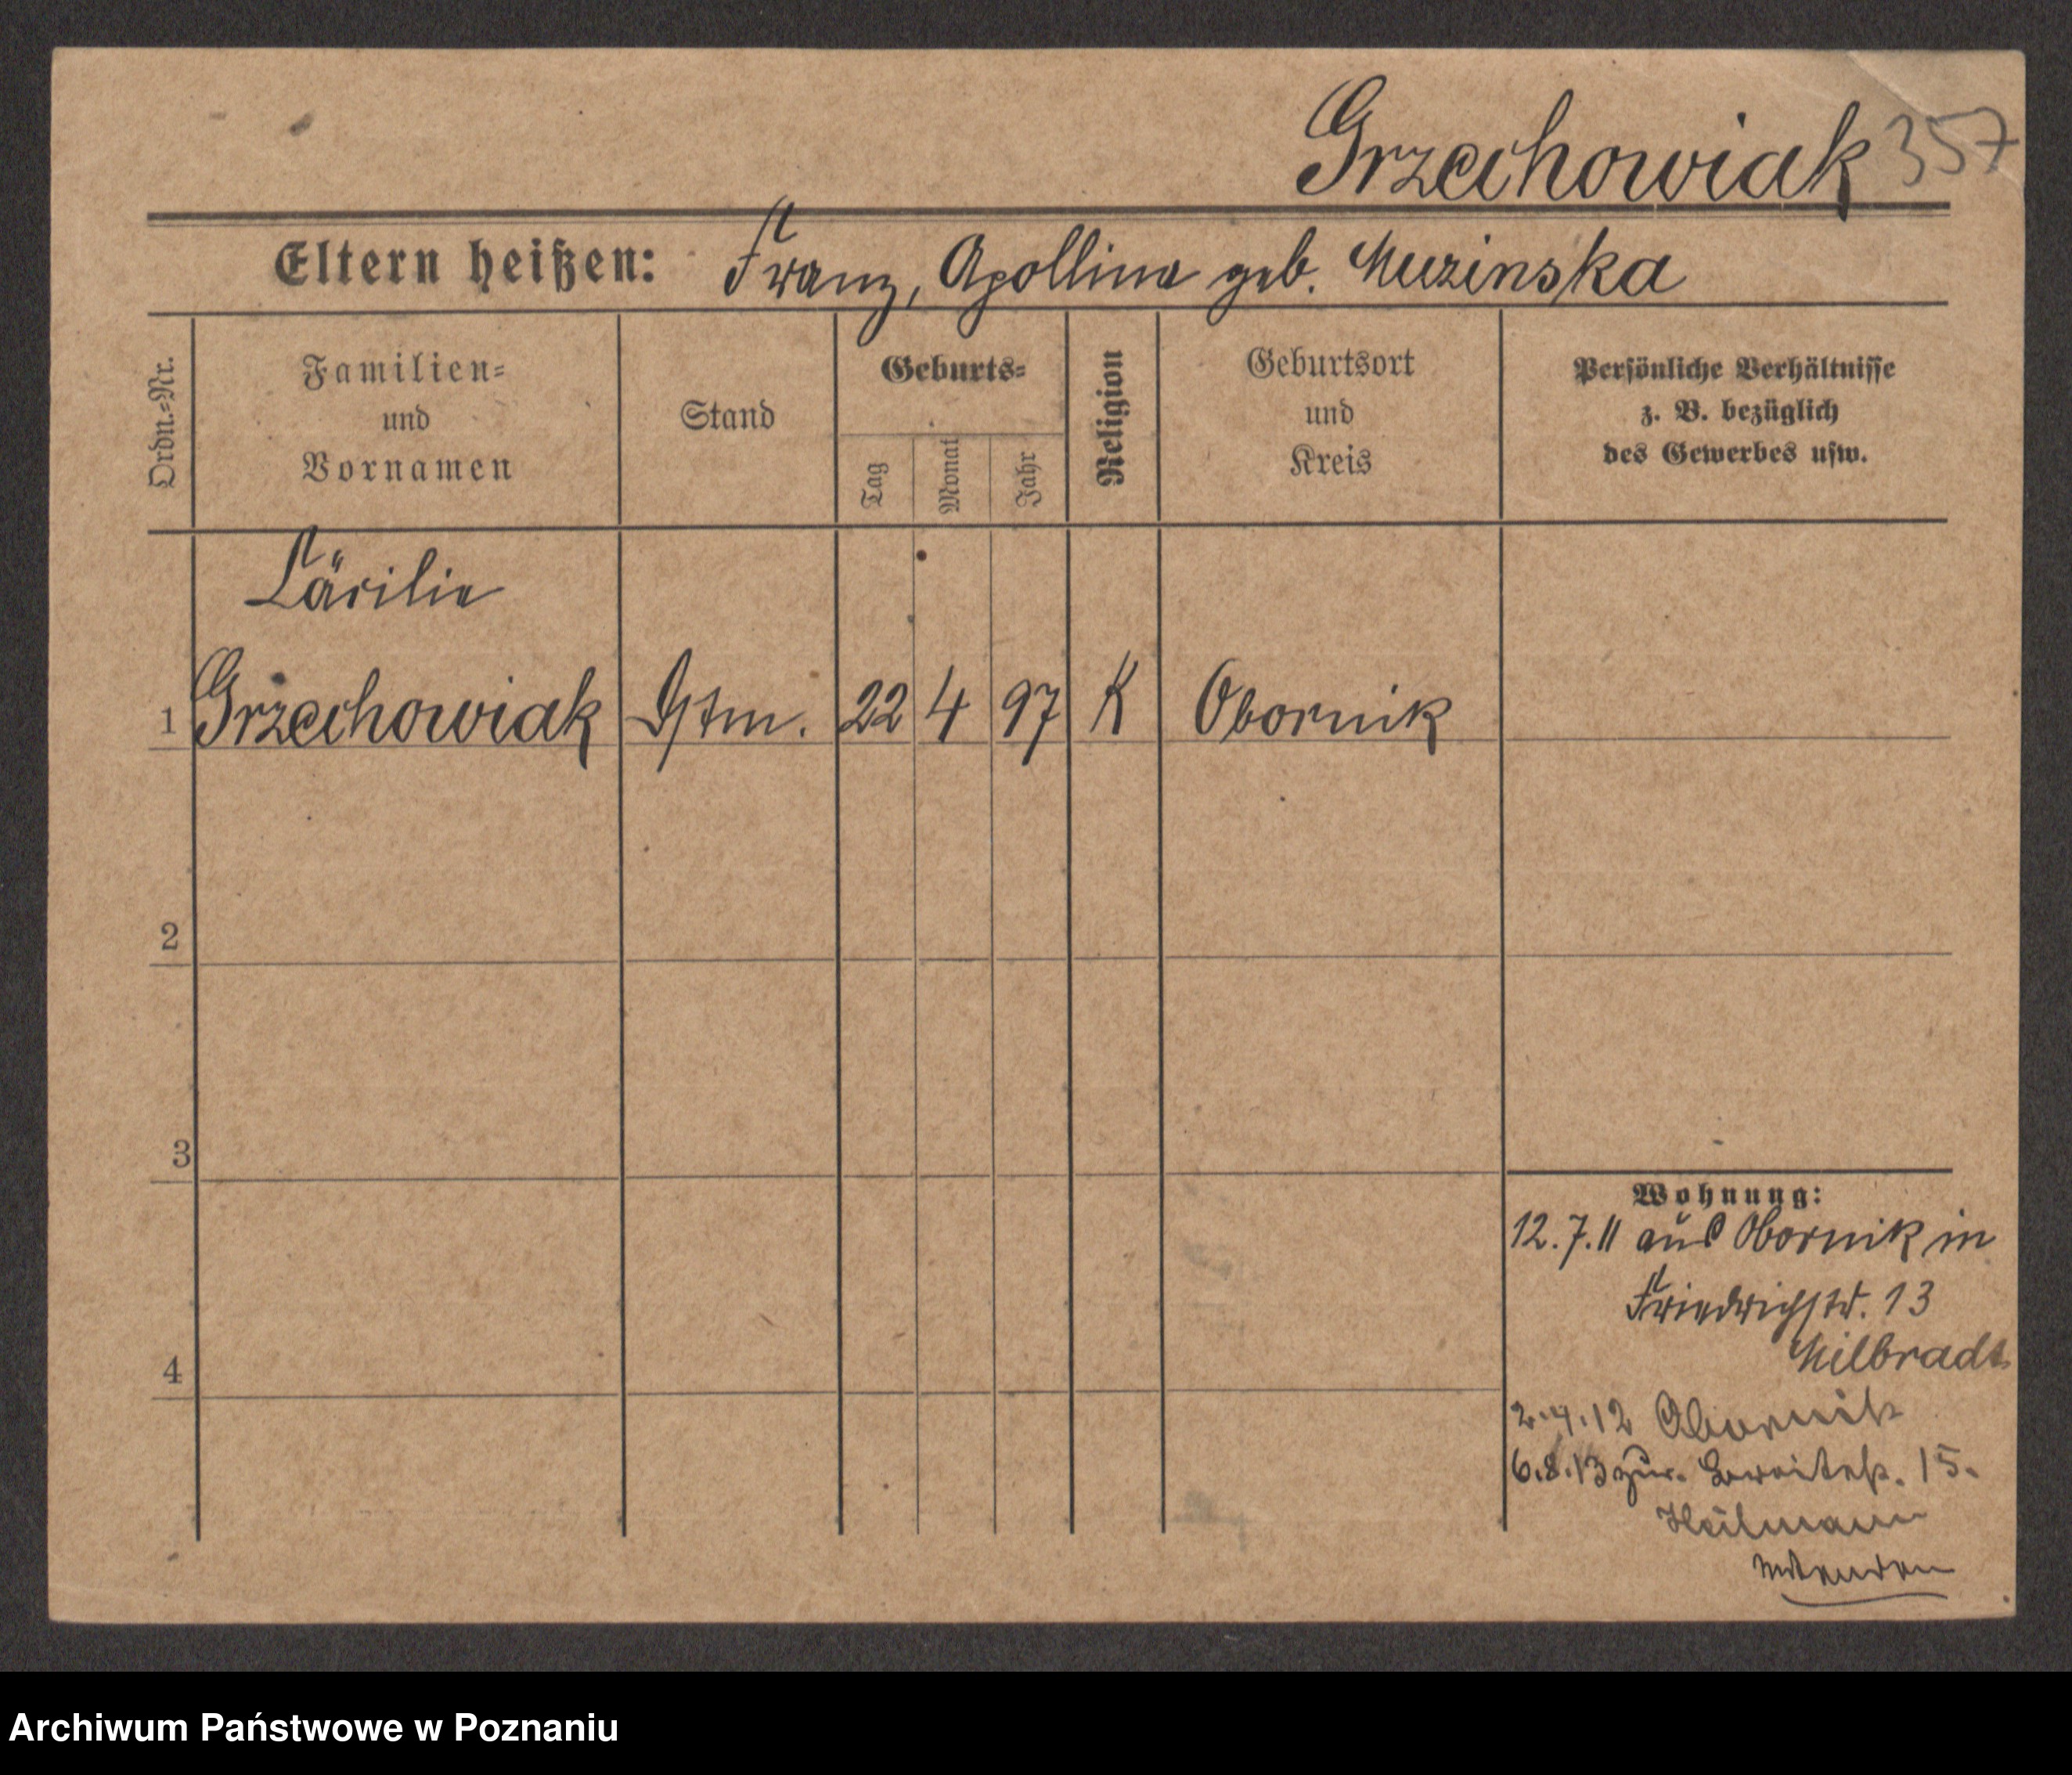 Grzechowiak 357
Eltern heißen: Franz, Apollina geb. Muzinska
Ordn.=Nr.
Familien=
und
Vornamen
Stand
Geburts=
Tag
Monat
Jahr
Religion
Geburtsort
und
Kreis
Persönliche Verhältnisse
z. B. bezüglich
des Gewerbes usw.
Cäcilie
1 Grzechowiak Dstm. 22 4 97 K Obornik
2
3
4
Wohnung:
12.7.11 aus Obornik in
Friedrichstr. 13
Milbradt
2.4.12 Obornik
6.8.13 zur. Breitestr. 15.
Heilmann
Archiwum Państwowe w Poznaniu